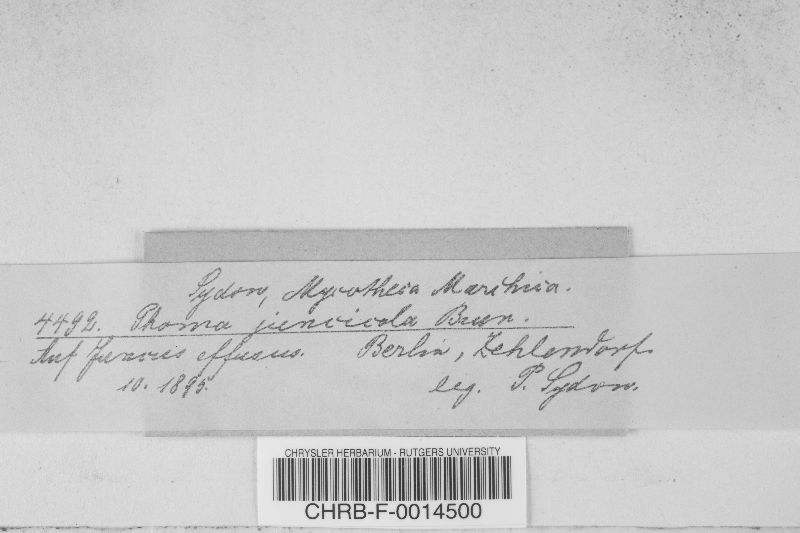 Sydow, Mycotheca Marchica.
4492. Phoma juncicola Brun.
Auf Juncus effusus. Berlin, Zehlendorf.
10. 1895. leg. P. Sydow.
CHRYSLER HERBARIUM - RUTGERS UNIVERSITY
CHRB-F-0014500